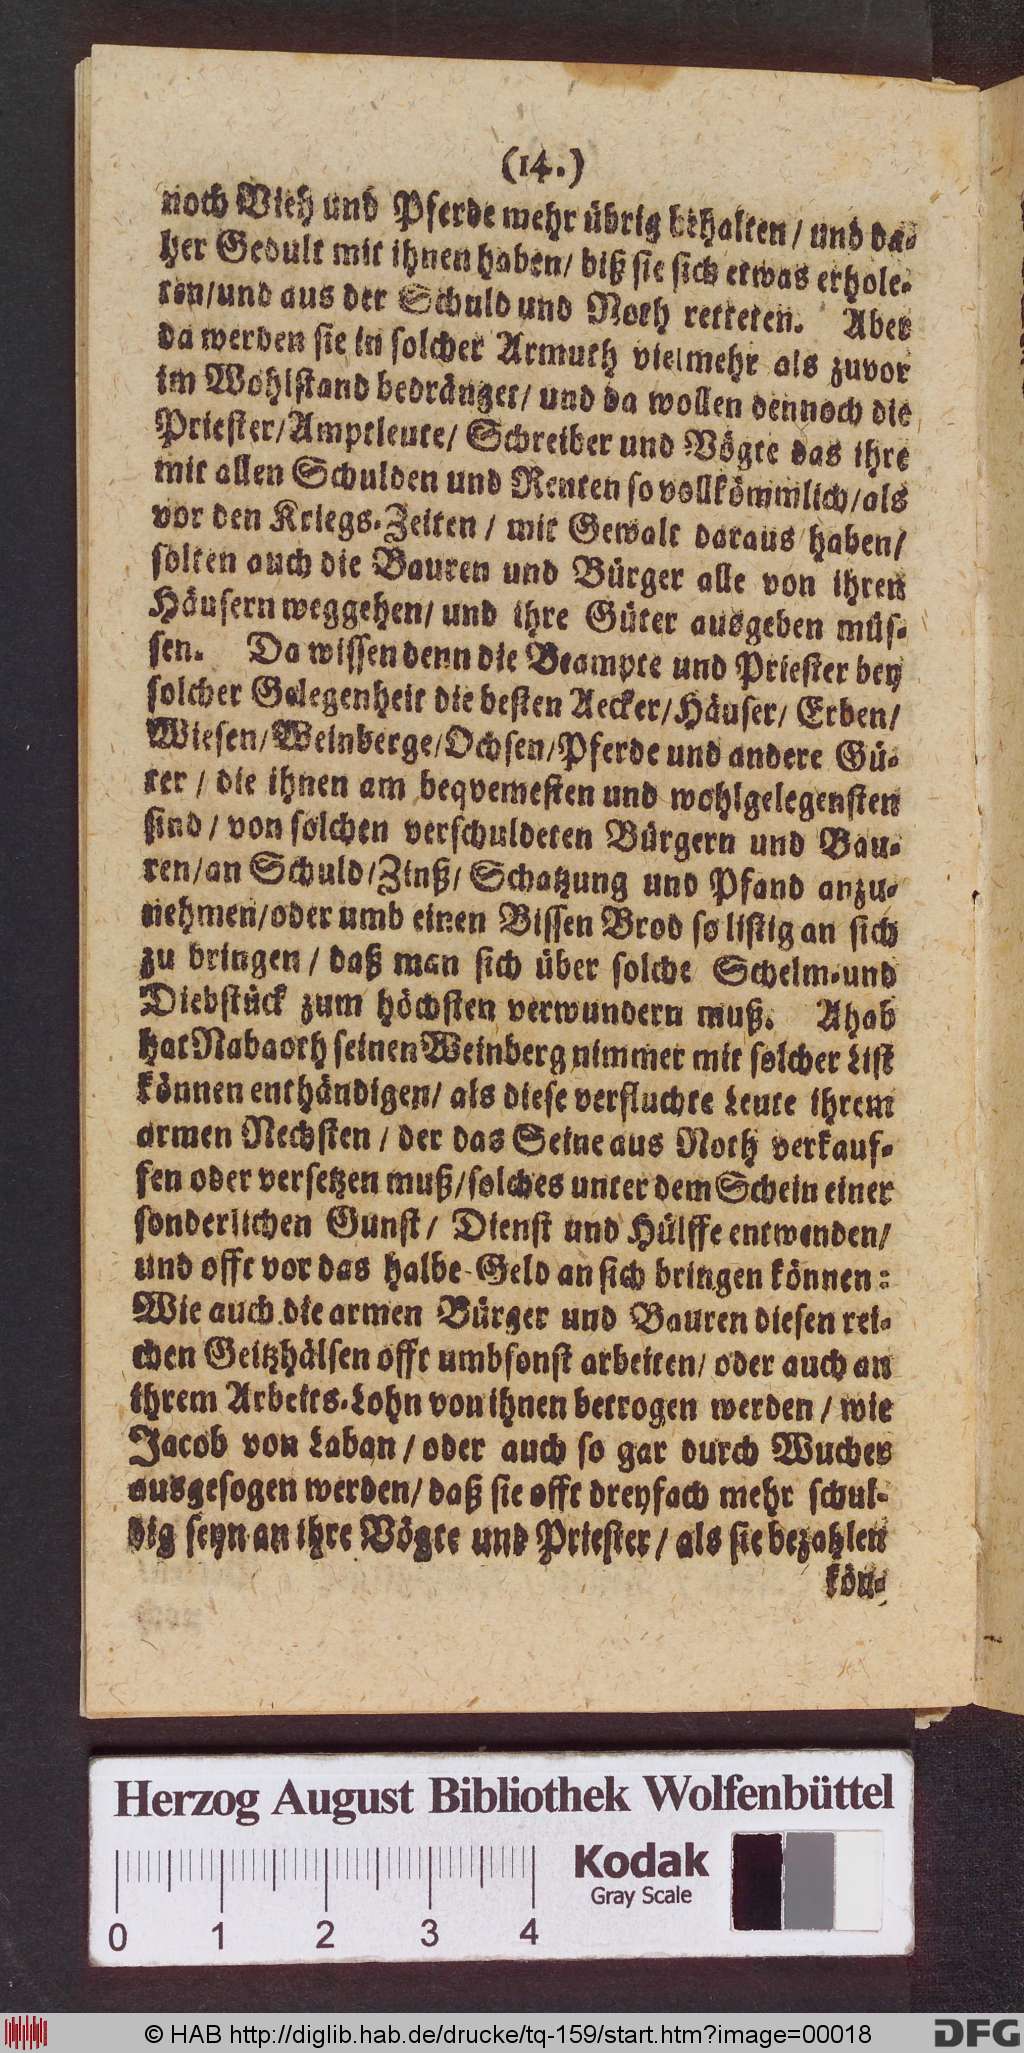 (14.)
noch Vieh und Pferde mehr übrig behalten / und da-
her Gedult mit ihnen haben / biß sie sich etwas erhole-
ten / und aus der Schuld und Noth retteten. Aber
da werden sie in solcher Armuth vielmehr als zuvor
im Wohlstand bedränget / und da wollen dennoch die
Priester / Amptleute / Schreiber und Vögte das ihre
mit allen Schulden und Renten so vollkömmlich / als
vor den Kriegs-Zeiten / mit Gewalt daraus haben /
solten auch die Bauren und Bürger alle von ihren
Häusern weggehen / und ihre Güter ausgeben müs-
sen. Da wissen denn die Beampte und Priester bey
solcher Gelegenheit die besten Aecker / Häuser / Erben /
Wiesen / Weinberge / Ochsen / Pferde und andere Gü-
ter / die ihnen am beqvemesten und wohlgelegensten
sind / von solchen verschuldeten Bürgern und Bau-
ren / an Schuld / Zinß / Schatzung und Pfand anzu-
nehmen / oder umb einen Bissen Brod so listig an sich
zu bringen / daß man sich über solche Schelm-und
Diebstück zum höchsten verwundern muß. Ahab
hat Nabaoth seinen Weinberg nimmer mit solcher List
können enthändigen / als diese verfluchte Leute ihrem
armen Nechsten / der das Seine aus Noth verkauf-
fen oder versetzen muß / solches unter dem Schein einer
sonderlichen Gunst / Dienst und Hülffe entwenden /
und offt vor das halbe Geld an sich bringen können:
Wie auch die armen Bürger und Bauren diesen rei-
chen Geitzhälsen offt umbsonst arbeiten / oder auch an
ihrem Arbeits-Lohn von ihnen betrogen werden / wie
Jacob von Laban / oder auch so gar durch Wucher
ausgesogen werden / daß sie offt dreyfach mehr schul-
dig seyn an ihre Vögte und Priester / als sie bezahlen
kön-
Herzog August Bibliothek Wolfenbüttel
Kodak
Gray Scale
0 1 2 3 4
© HAB http://diglib.hab.de/drucke/tq-159/start.htm?image=00018
DFG